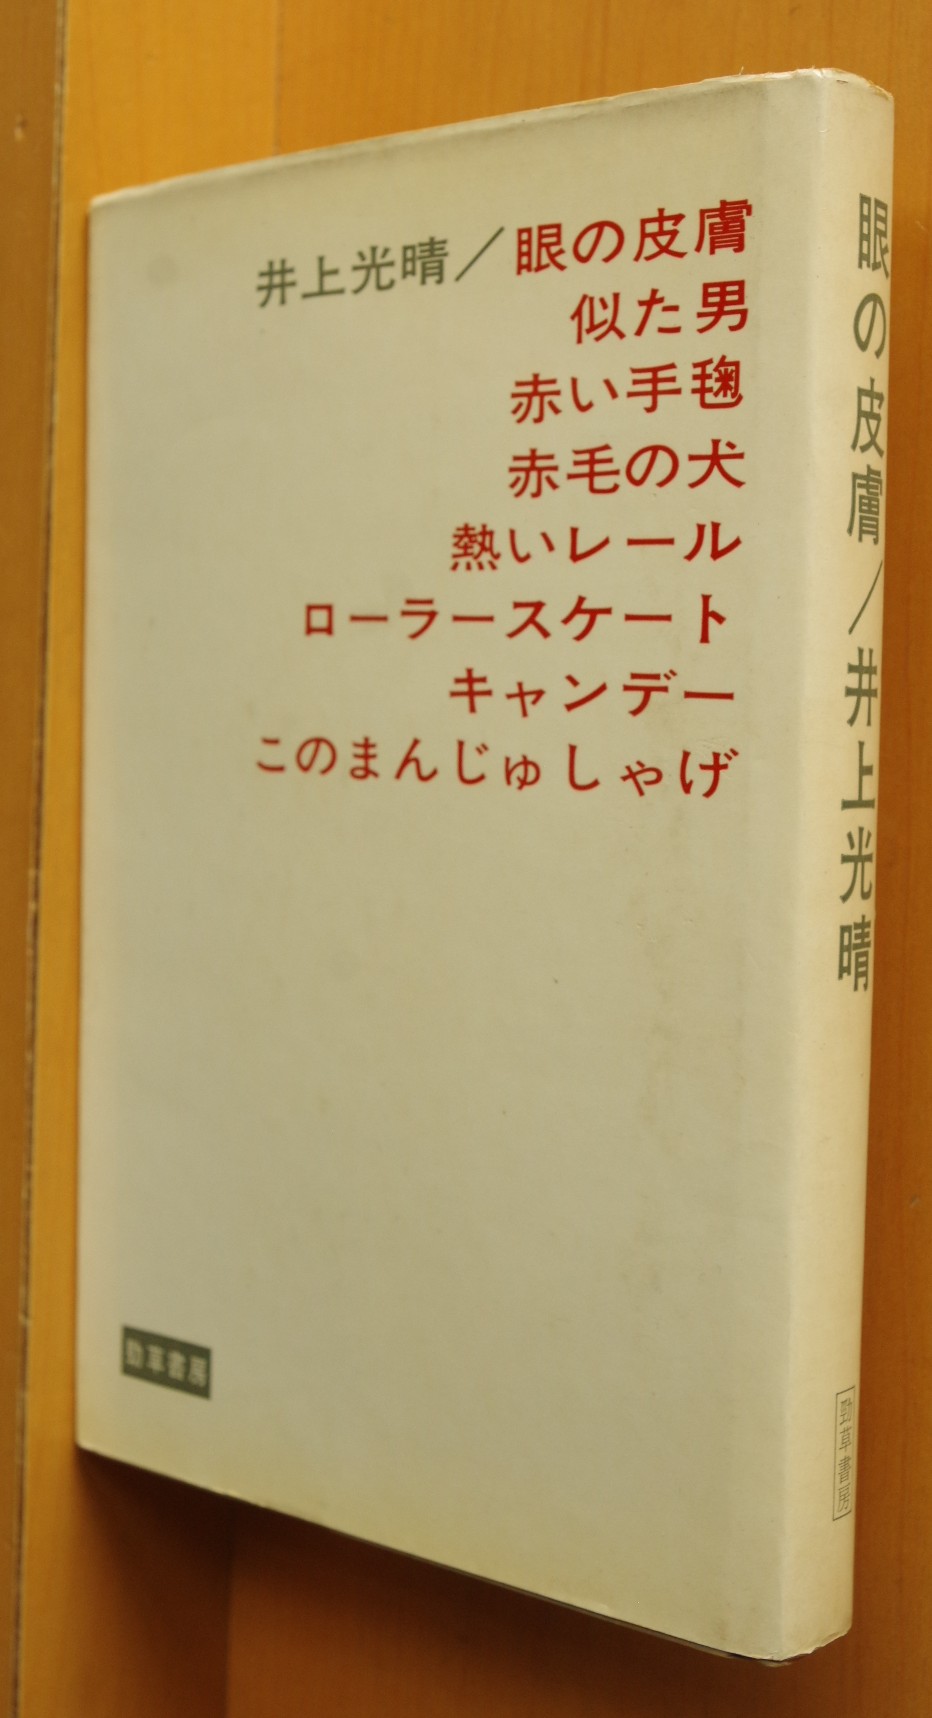 井上光晴／眼の皮膚
似た男
赤い手毱
赤毛の犬
熱いレール
ローラースケート
キャンデー
このまんじゅしゃげ
勁草書房
眼の皮膚／井上光晴
勁草書房